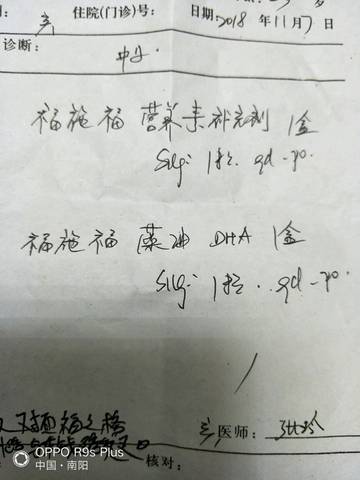 住院(门诊)号: 日期:2018年11月7日
诊断:
福施福 营养素补充剂 1盒
Sig: 1粒 qd-po.
福施福 藻油 DHA 1盒
Sig: 1粒. qd-po.
医师:
核对:
OPPO R9s Plus
中国·南阳